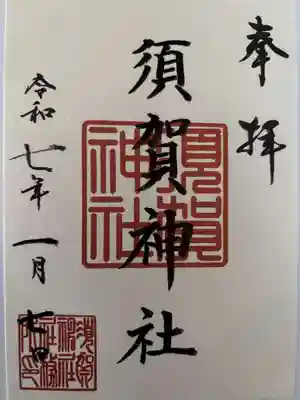 奉拝
須賀神社
須賀神社
令和七年一月七日
須賀神社社務所印